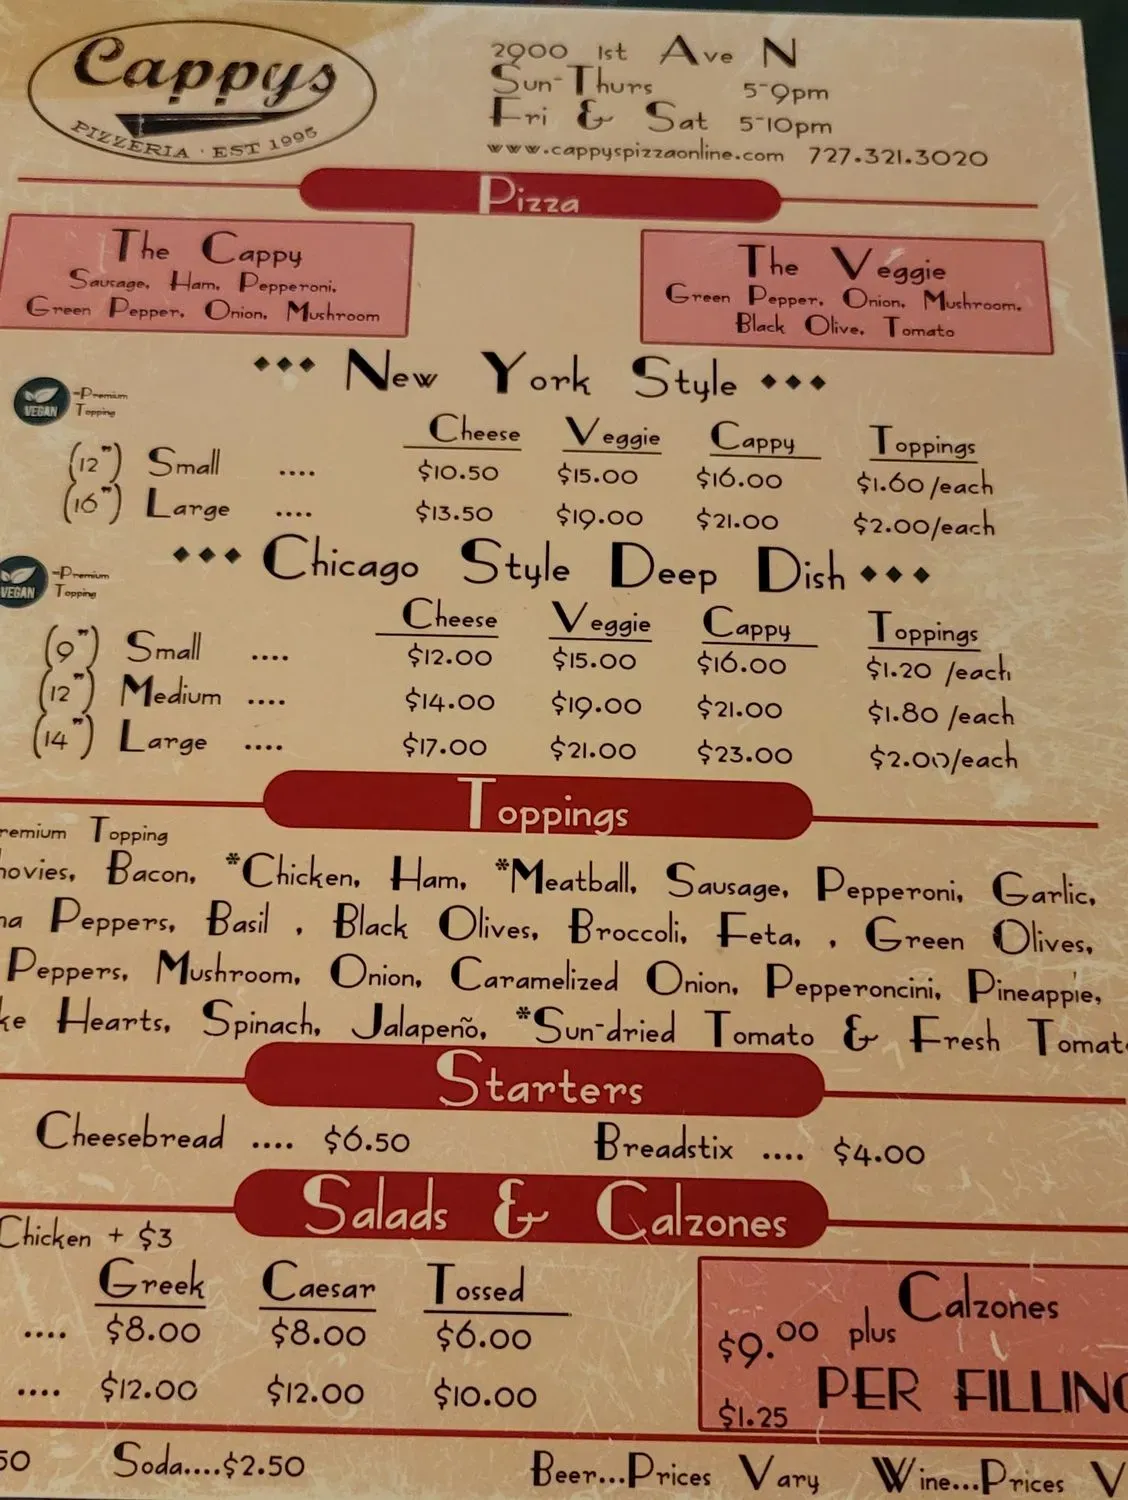 Cappys
PIZZERIA · EST 1995
2900 1st Ave N
Sun-Thurs 5-9pm
Fri & Sat 5-10pm
www.cappyspizzaonline.com 727.321.3020
Pizza
The Cappy
Sausage, Ham, Pepperoni,
Green Pepper, Onion, Mushroom
The Veggie
Green Pepper, Onion, Mushroom,
Black Olive, Tomato
New York Style
VEGAN =Premium
Topping
Cheese Veggie Cappy Toppings
(12") Small .... $10.50 $15.00 $16.00 $1.60/each
(16") Large .... $13.50 $19.00 $21.00 $2.00/each
Chicago Style Deep Dish
VEGAN =Premium
Topping
Cheese Veggie Cappy Toppings
(9") Small .... $12.00 $15.00 $16.00 $1.20 /each
(12") Medium .... $14.00 $19.00 $21.00 $1.80 /each
(14") Large .... $17.00 $21.00 $23.00 $2.00/each
Toppings
remium Topping
hovies, Bacon, *Chicken, Ham, *Meatball, Sausage, Pepperoni, Garlic,
na Peppers, Basil , Black Olives, Broccoli, Feta, , Green Olives,
Peppers, Mushroom, Onion, Caramelized Onion, Pepperoncini, Pineapple,
ke Hearts, Spinach, Jalapeño, *Sun-dried Tomato & Fresh Tomat
Starters
Cheesebread .... $6.50 Breadstix .... $4.00
Salads & Calzones
Chicken + $3
Greek Caesar Tossed
.... $8.00 $8.00 $6.00
.... $12.00 $12.00 $10.00
Calzones
$9.00 plus
$1.25 PER FILLING
50 Soda....$2.50 Beer...Prices Vary Wine...Prices V